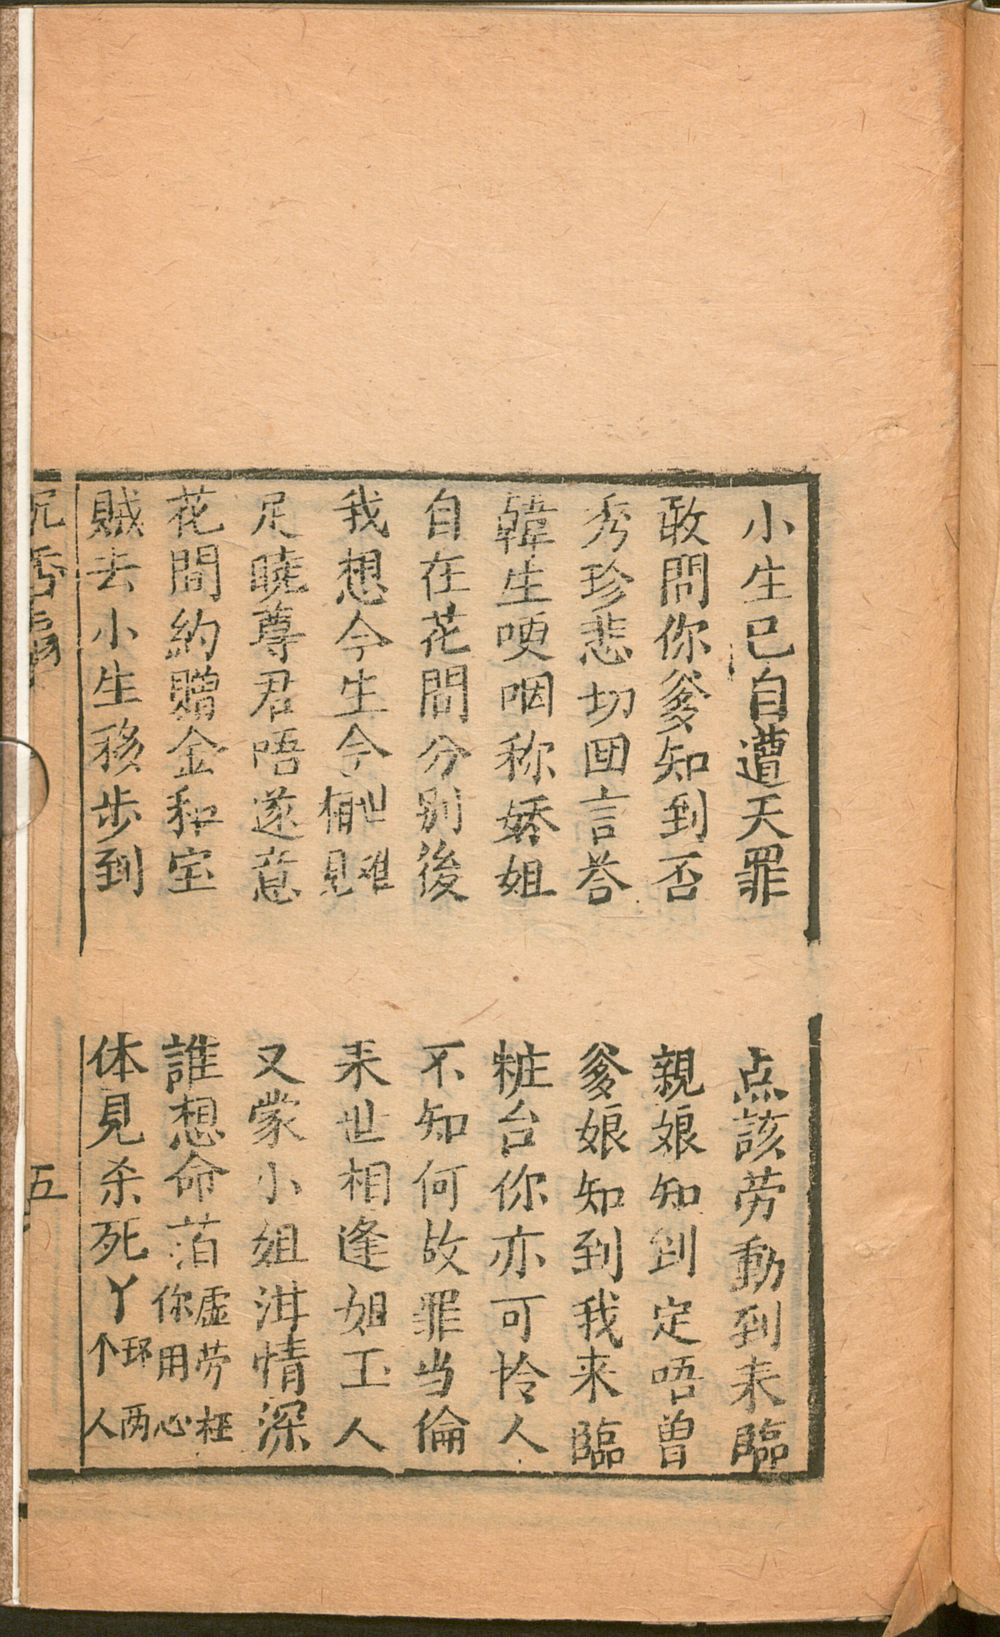 小生已自遭天罪　点該劳動到来臨
敢問你爹知到否　親娘知到定唔曽
秀珍悲切囬言荅　爹娘知到我来臨
韓生哽咽称娇姐　粧台你亦可怜人
自在花間分别後　不知何故罪当倫
我想今生今世难相見　来世相逢姐玉人
又蒙小姐深情
花間約贈金和宝　誰想命泊虚劳枉你用心
賊去小生移步到　体見杀死丫环两个人
五